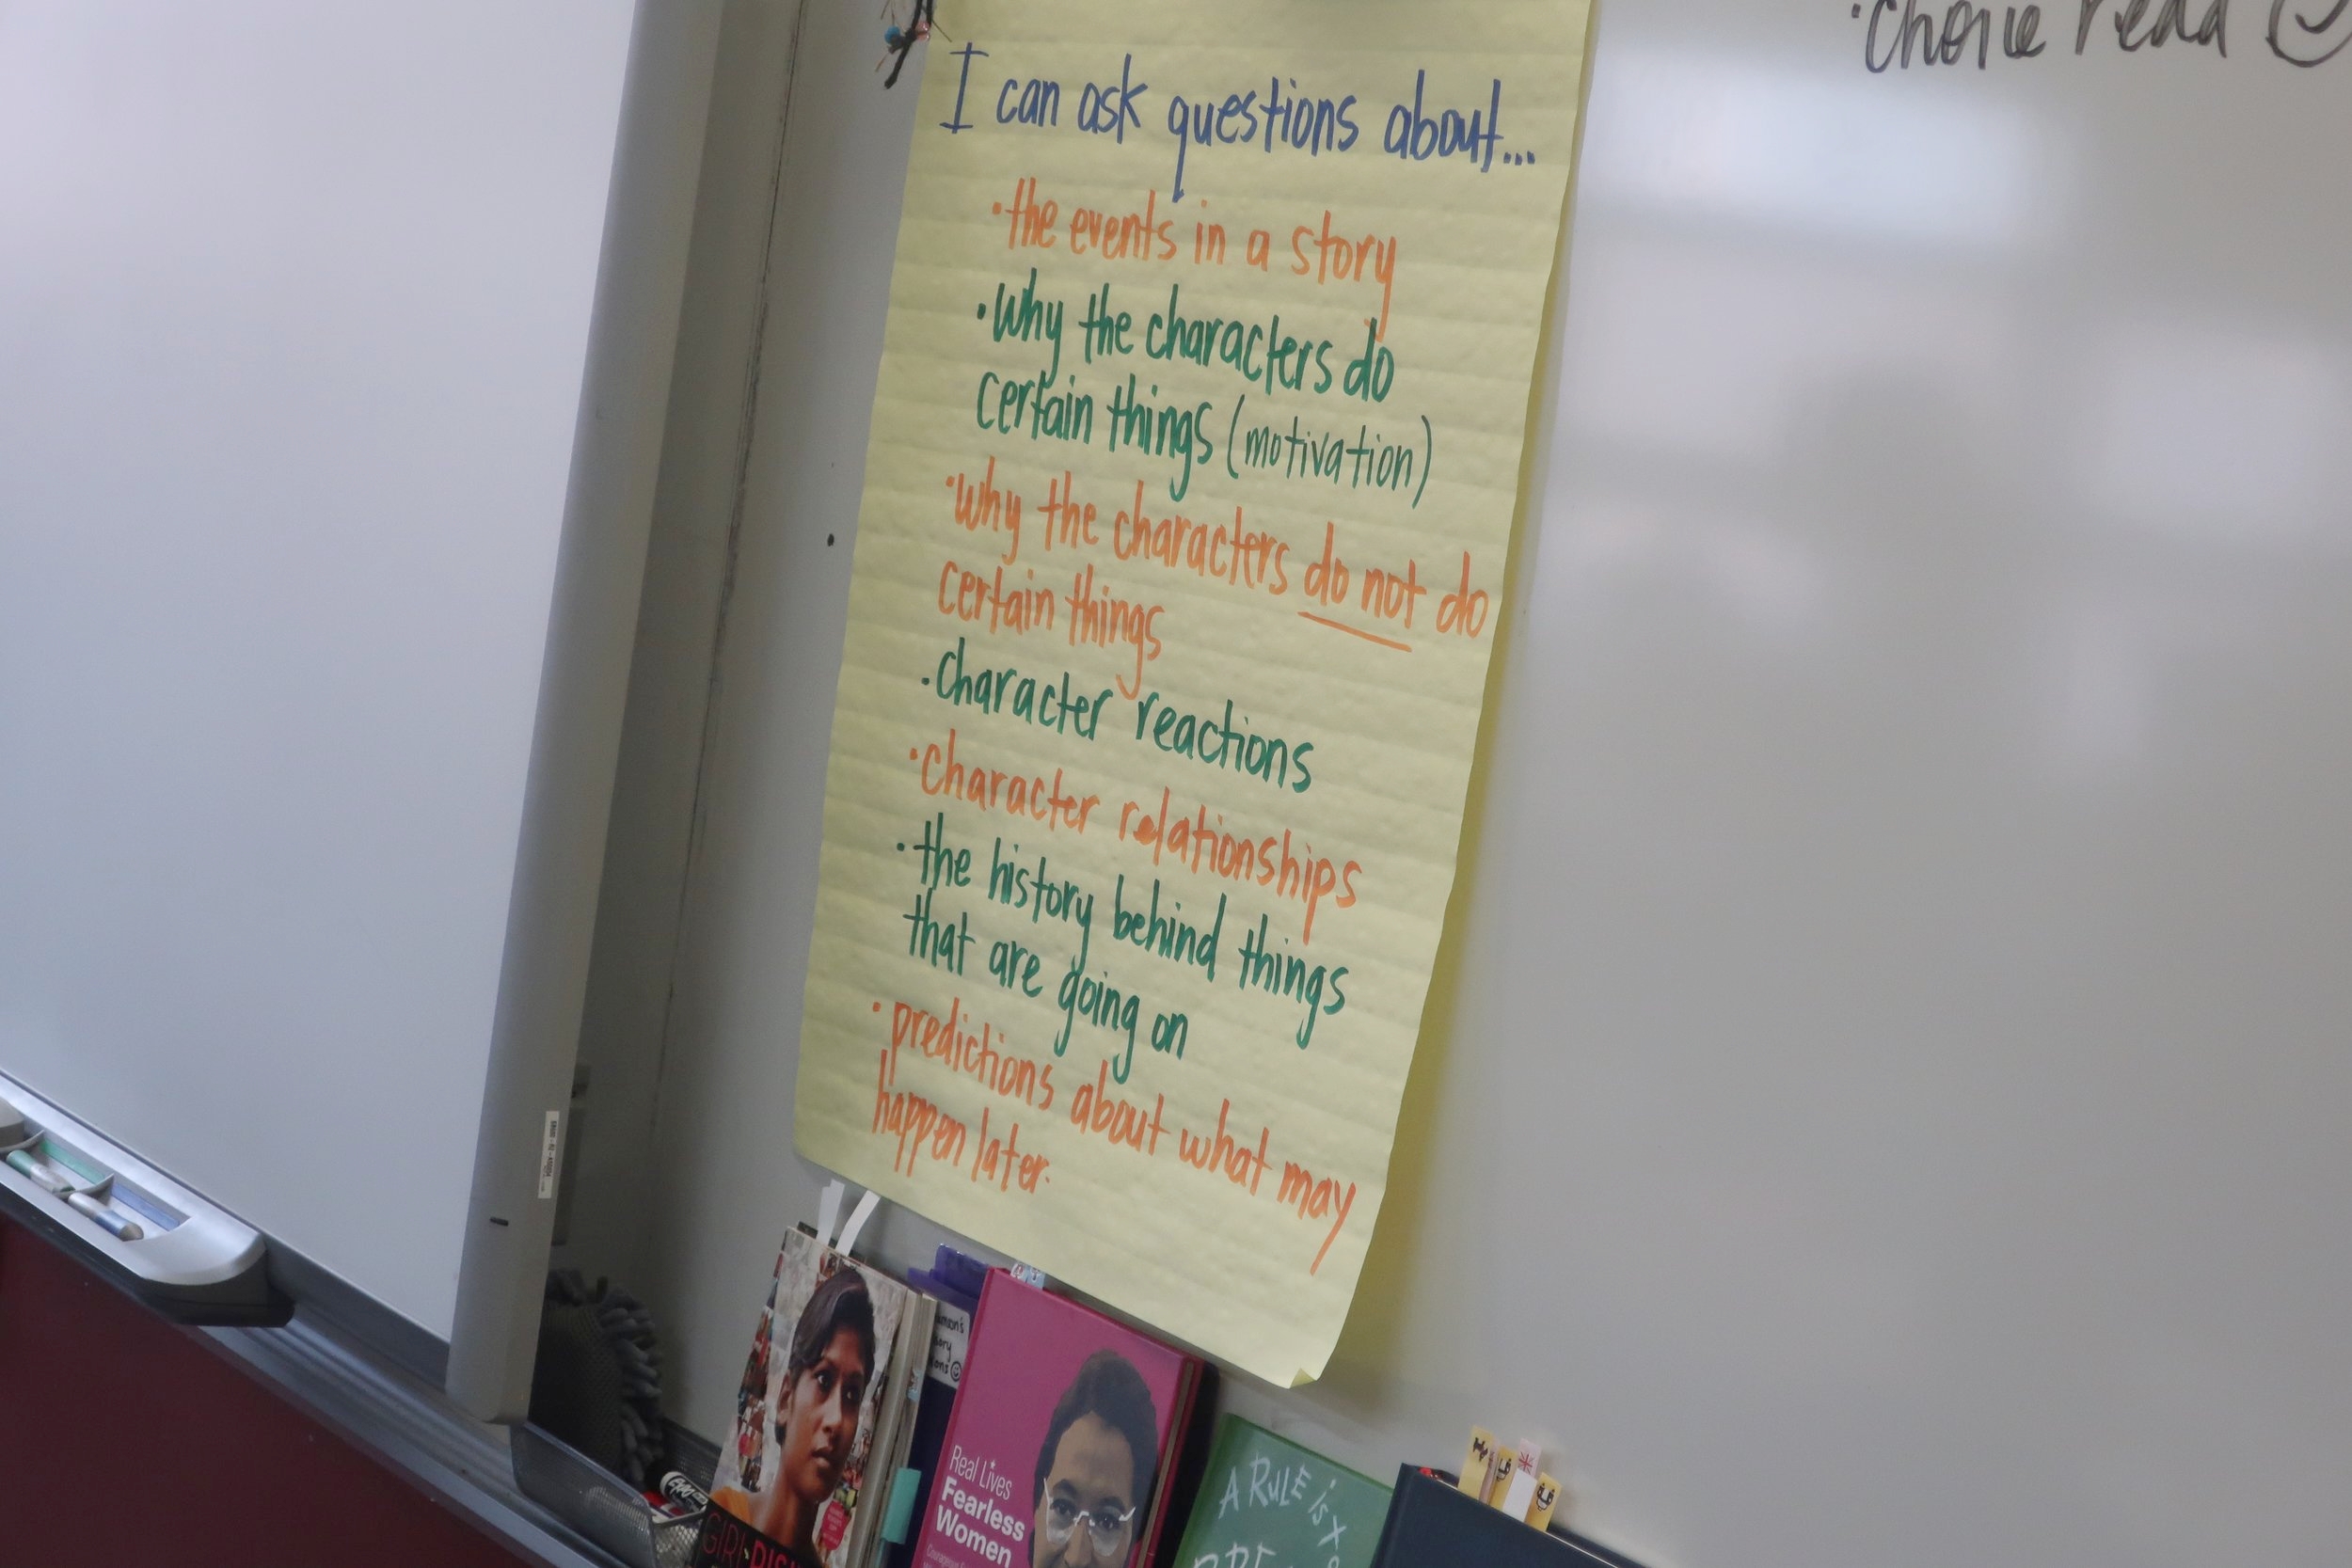 ·Choice read
I can ask questions about...
·the events in a story
·why the characters do
certain things (motivation)
·why the characters do not do
certain things
·character reactions
·character relationships
·the history behind things
that are going on
·predictions about what may
happen later.
Real Lives
Fearless
Women
GIRL RISING
A RULE is